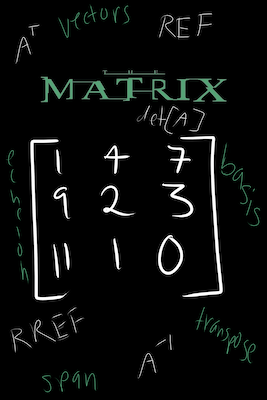 A^T vectors REF
THE
MATRIX
det[A]
echelon
1 4 7
9 2 3
11 1 0
basis
RREF
A^-1
transpose
span